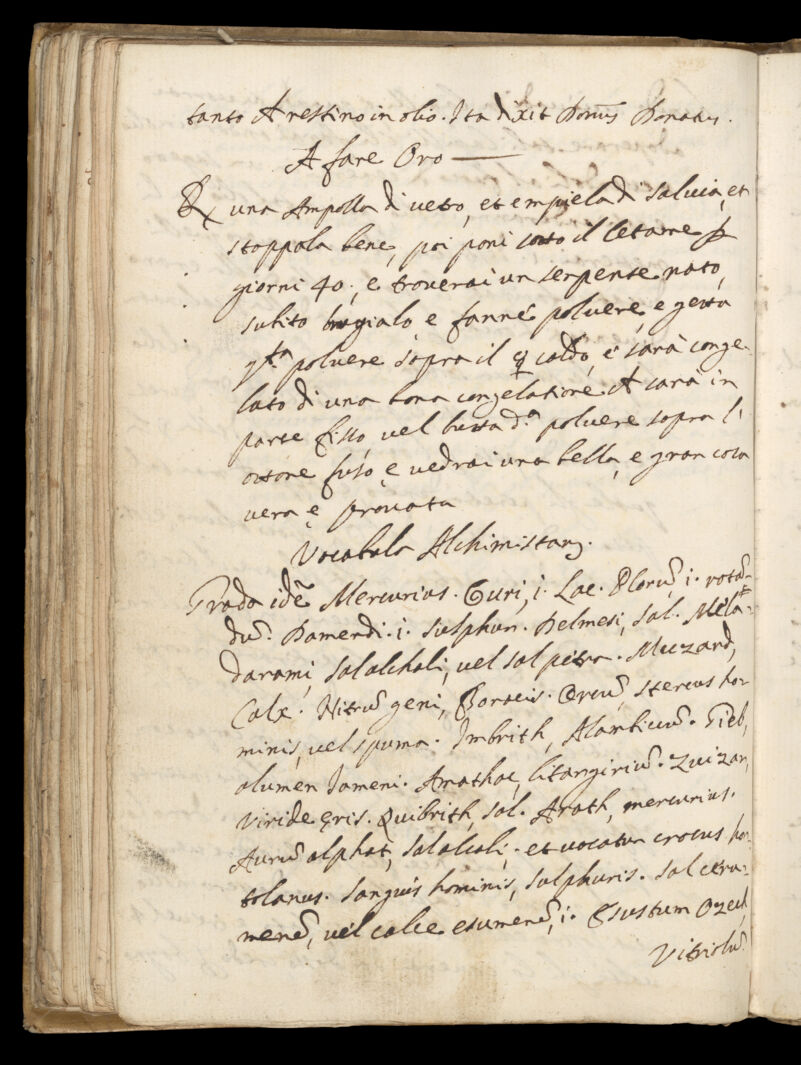 tanto che restino in olio. Ita dixit Donus Donatus.
A fare Oro
Rx una Ampolla di vetro, et empiela di salvia, et
stoppala bene, poi poni sotto il letame p
giorni 40, e troverai un serpente nato,
subito brugialo, e fanne polvere, e getta
q.ta polvere sopra il ☿ caldo, e sarà conge-
lato di una bona congelatione che sarà in
parte fisso, vel butta d.a polvere sopra l'
ottone fuso, e vedrai una bella, e gran cosa
vera e provata
Vocabula Alchimistarum.
Trada idẽ Mercurius. Curi, i. Lac.
dũ. Damendi. i. sulphur. Delmesi, sal.
darami, salalchali, vel sal petra. Muzard,
Calx. Nitrũ geni, Boracis. stercus ho-
minis, vel spuma. Imbrith, Tieb,
alumen Jameni. Amathac, litargiriũ. Zuizar,
Viride ęris. Quibrith, sol. Arath, mercurius.
Aurũ alphat, salalcali, et vocatur crocus hor-
tolanus. Sanguis hominis, sulphuris. sal
vel calce i.
Vitriolũ